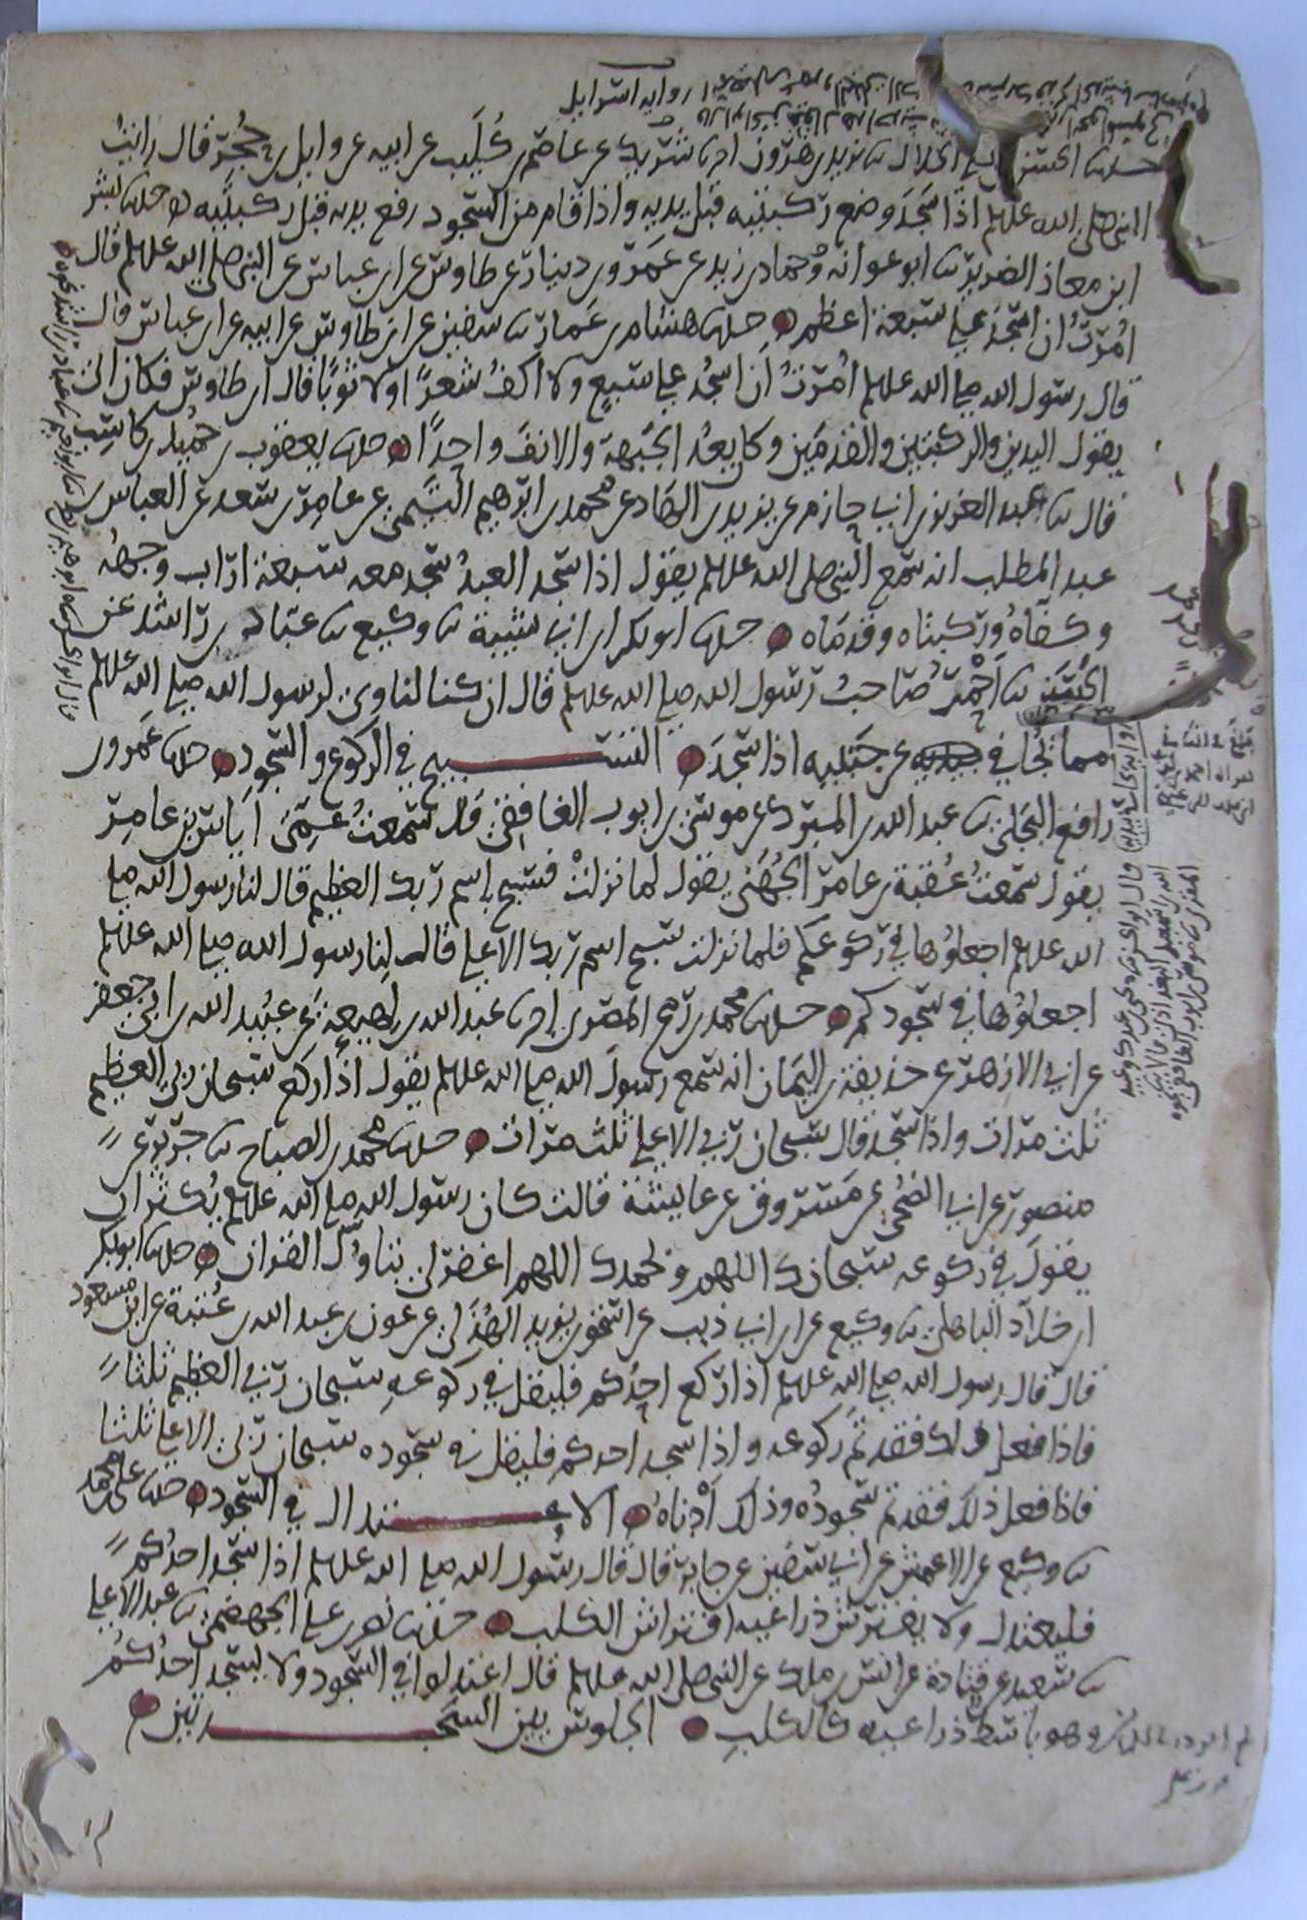 حدثنا الحسن بن علي الخلال ثنا يزيد بن هرون انا شريك عن عاصم بن كليب عن ابيه عن وايل بن حجر قال رايت
النبي صلى الله عليه وسلم اذا سجد وضع ركبتيه قبل يديه واذا قام من السجود رفع يديه قبل ركبتيه حدثنا بشر
ابن معاذ الضرير ثنا ابو عوانه وحماد بن زيد عن عمرو بن دينار عن طاوس عن ابن عباس عن النبي صلى الله عليه وسلم قال
امرت ان اسجد على سبعة اعظم حدثنا هشام بن عمار ثنا سفين عن ابن طاوس عن ابيه عن ابن عباس قال
قال رسول الله صلى الله عليه وسلم امرت ان اسجد على سبع ولا اكف شعرا ولا ثوبا قال ابن طاوس فكان ابي
يقول اليدين والركبتين والقدمين وكان يعد الجبهة والانف واحدا حدثنا يعقوب بن حميد بن كاسب
قال ثنا عبد العزيز بن ابي حازم عن يزيد بن الهاد عن محمد بن ابرهيم التيمي عن عامر بن سعد عن العباس بن
عبد المطلب انه سمع النبي صلى الله عليه وسلم يقول اذا سجد العبد سجد معه سبعة اراب وجهه
وكفاه وركبتاه وقدماه حدثنا ابو بكر بن ابي شيبة ثنا وكيع ثنا عباد بن راشد عن
الحسن ثنا احمر صاحب رسول الله صلى الله عليه وسلم قال ان كنا لناوي لرسول الله صلى الله عليه وسلم
مما يجافي يديه عن جنبيه اذا سجد التسبيح في الركوع والسجود حدثنا عمرو بن
رافع البجلي ثنا عبد الله بن المبرك عن موسى بن ايوب الغافقي قال سمعت عمي اياس بن عامر
يقول سمعت عقبة بن عامر الجهني يقول لما نزلت فسبح باسم ربك العظيم قال لنا رسول الله صلى
الله عليه وسلم اجعلوها في ركوعكم فلما نزلت سبح اسم ربك الاعلى قال لنا رسول الله صلى الله عليه وسلم
اجعلوها في سجودكم حدثنا محمد بن رمح المصري انا عبد الله بن لهيعة عن عبيد الله بن ابي جعفر
عن ابي الازهر عن حذيفة بن اليمان انه سمع رسول الله صلى الله عليه وسلم يقول اذا ركع سبحان ربي العظيم
ثلث مرات واذا سجد قال سبحان ربي الاعلى ثلث مرات حدثنا محمد بن الصباح ثنا جرير عن
منصور عن ابي الضحى عن مسروق عن عايشة قالت كان رسول الله صلى الله عليه وسلم يكثر ان
يقول في ركوعه سبحانك اللهم وبحمدك اللهم اغفر لي يتاول القران حدثنا ابو بكر
ابن خلاد الباهلي ثنا وكيع عن ابن ابي ذيب عن اسحق بن يزيد الهذلي عن عون بن عبد الله بن عتبة عن ابن مسعود
قال قال رسول الله صلى الله عليه وسلم اذا ركع احدكم فليقل في ركوعه سبحان ربي العظيم ثلثا
فاذا فعل ذلك فقد تم ركوعه واذا سجد احدكم فليقل في سجوده سبحان ربي الاعلى ثلثا
فاذا فعل ذلك فقد تم سجوده وذلك ادناه الاعتدال في السجود حدثنا علي بن محمد
ثنا وكيع عن الاعمش عن ابي سفين عن جابر قال قال رسول الله صلى الله عليه وسلم اذا سجد احدكم
فليعتدل ولا يفترش ذراعيه افتراش الكلب حدثنا نصر بن علي الجهضمي ثنا عبد الاعلى
ثنا سعيد عن قتادة عن انس بن ملك عن النبي صلى الله عليه وسلم قال اعتدلوا في السجود ولا يسجد احدكم
وهو باسط ذراعيه كالكلب الجلوس بين السجدتين